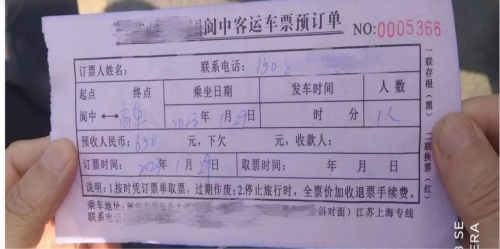 阆中客运车票预订单 NO:0005366
订票人姓名: 联系电话: 150
起点 终点 乘坐日期 发车时间 人数
阆中 2023年1月29日 时 分 1人
预收人民币: 630 元,下欠 元,收款人:
订票时间: 2023年1月 日 取票时间: 年 月 日
说明:1.按时凭订单取票,过期作废;2.停止旅行时,全票价加收退票手续费。
乘车地址: 斜对面)江苏上海专线
联系电话
一联存根(黑) 二联换票(红)